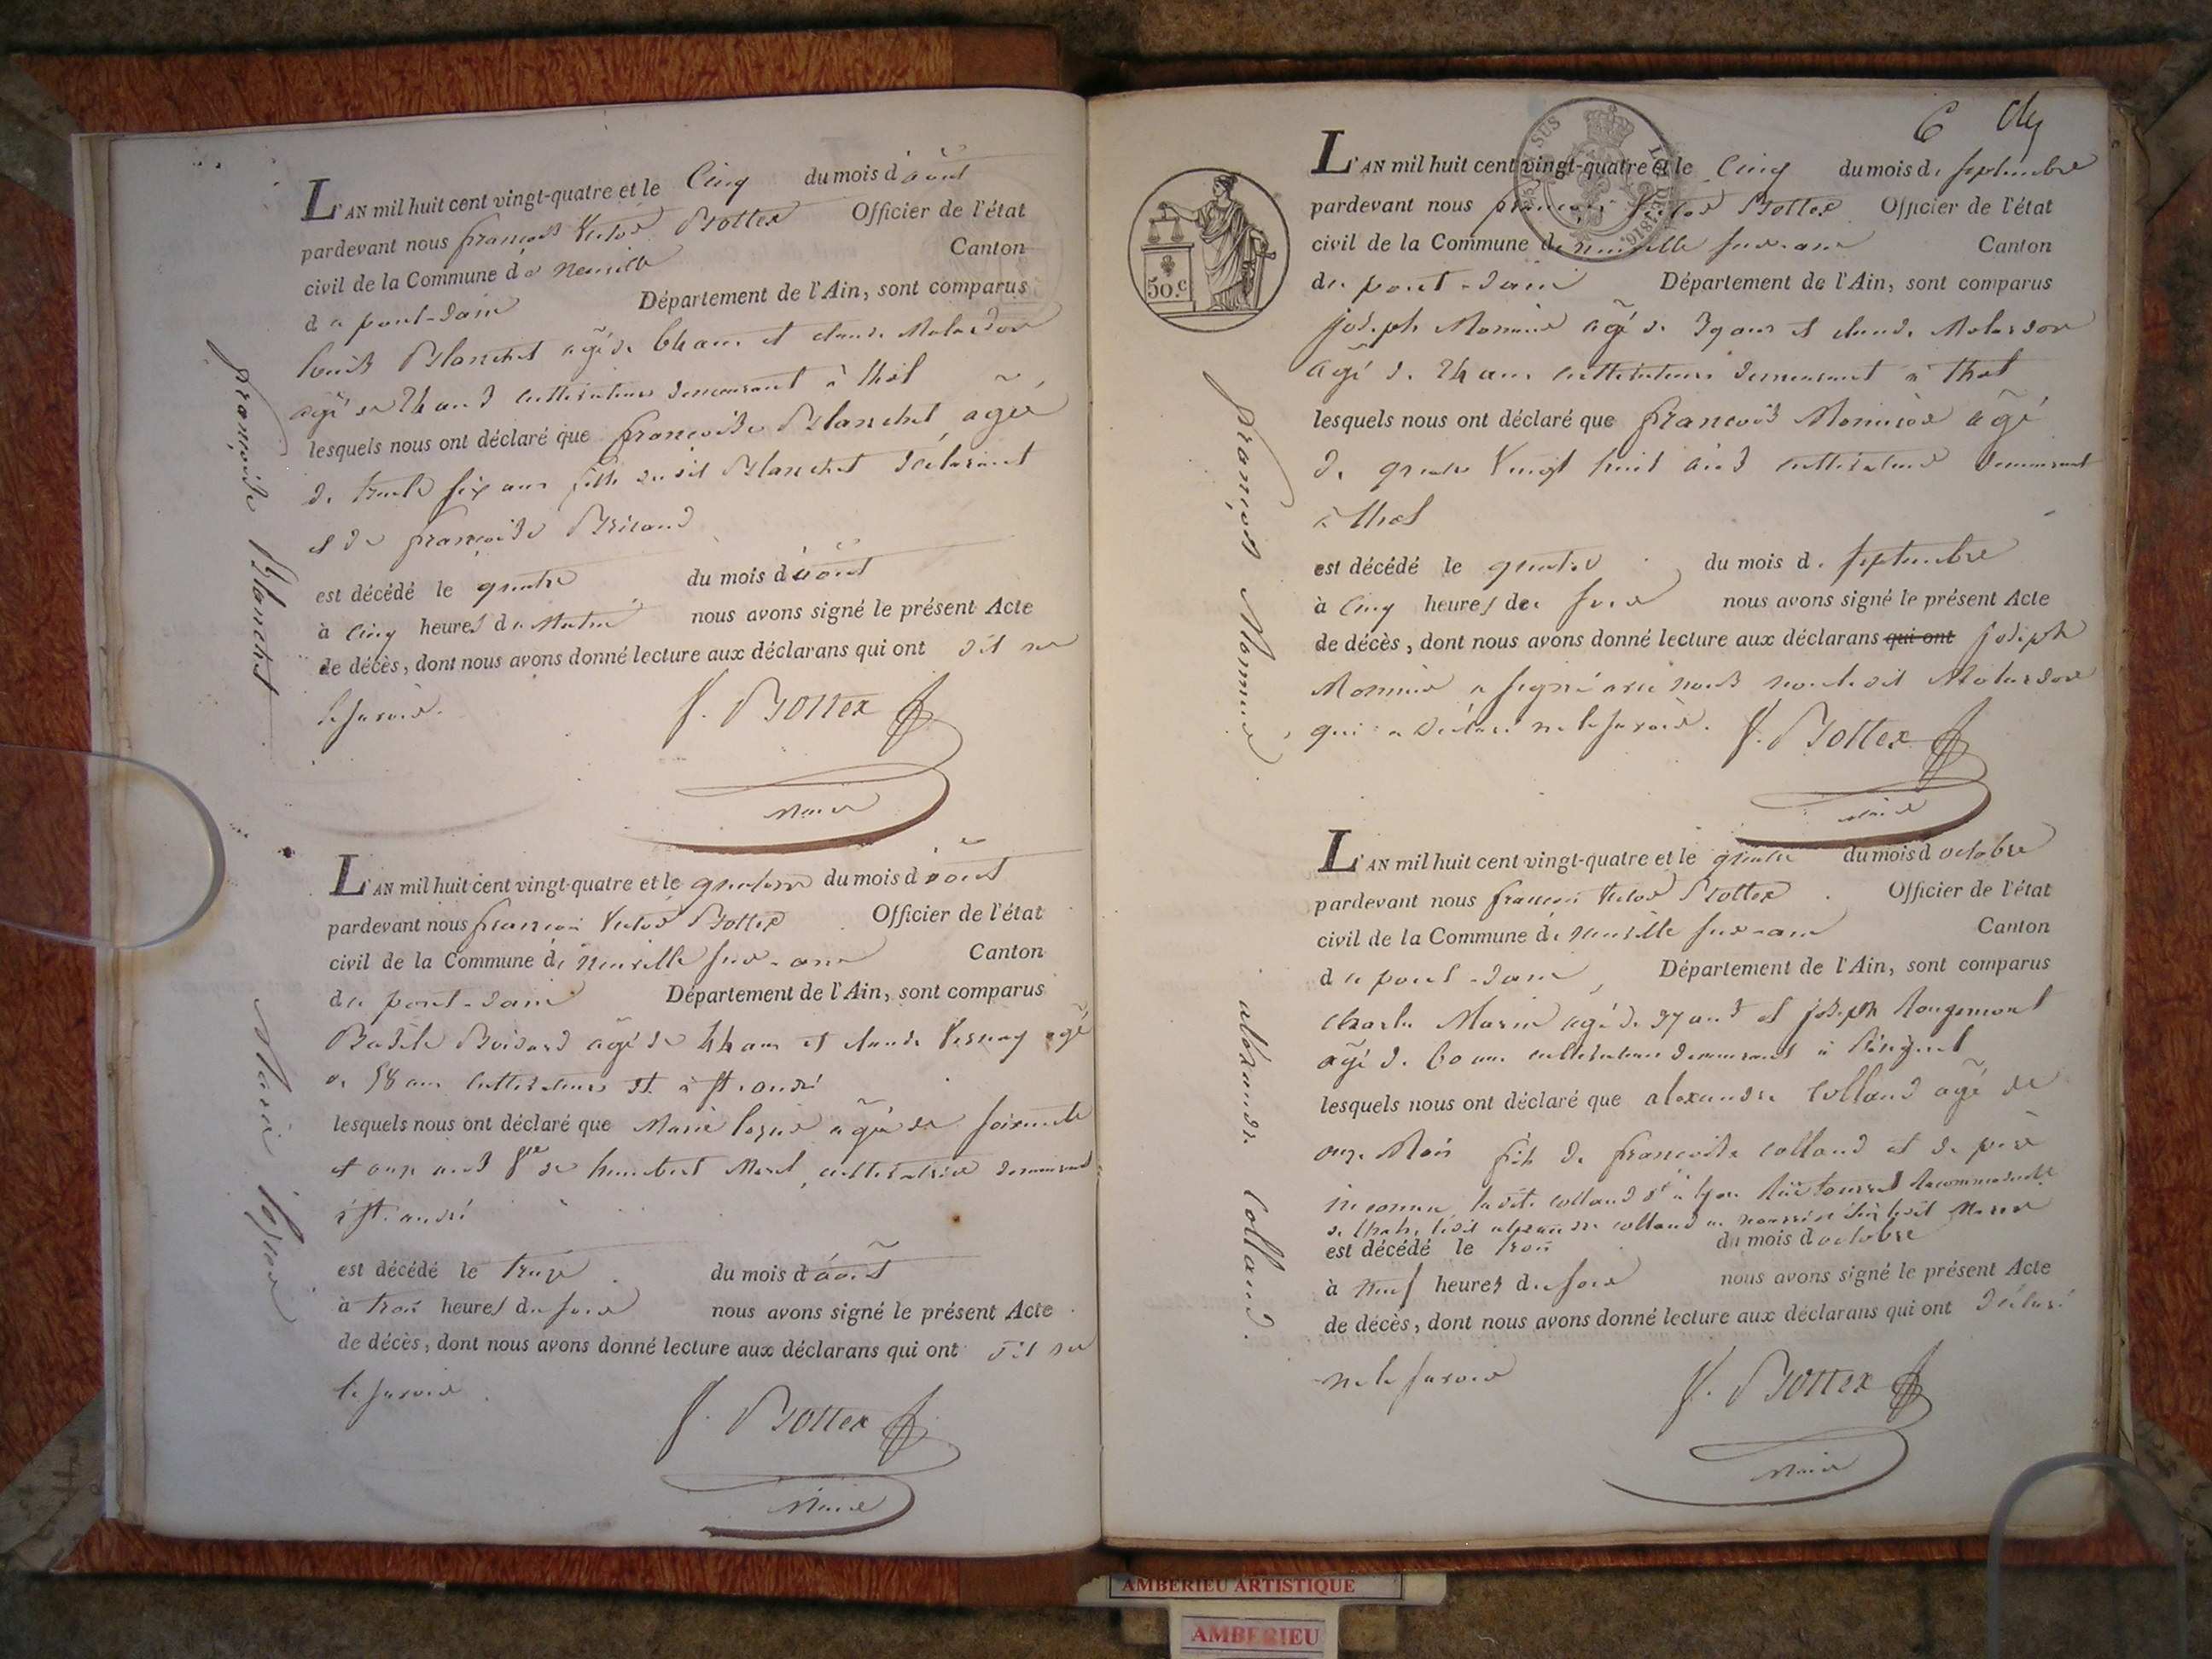 L'AN mil huit cent vingt-quatre et le Cinq du mois d'août
pardevant nous françois Victor Bottex Officier de l'état
civil de la Commune de Neuville Canton
de pont-dain Département de l'Ain, sont comparus
louis Blanchet agé de 64 ans et claude Molardon
agé de 24 ans cultivateurs demeurant à thol
lesquels nous ont déclaré que françoise Blanchet agée
de trente six ans fille dudit Blanchet déclarant
et de françoise
est décédé le quatre du mois d'août
à Cinq heures du Matin nous avons signé le présent Acte
de décès, dont nous avons donné lecture aux déclarans qui ont dit ne
le savoir.
f. Bottex
Maire
françoise Blanchet
L'AN mil huit cent vingt-quatre et le quatorze du mois d'août
pardevant nous françois Victor Bottex Officier de l'état
civil de la Commune de Neuville sur-ain Canton
de pont-dain Département de l'Ain, sont comparus
agé de 44 ans et claude Vernay agé
de 58 ans cultivateurs dt. à st. andré
lesquels nous ont déclaré que Marie agée de soixante
et onze ans de humbert Morel, cultivatrice demeurant
à st. andré
est décédé le treize du mois d'août
à trois heures du soir nous avons signé le présent Acte
de décès, dont nous avons donné lecture aux déclarans qui ont dit ne
le savoir.
f. Bottex
Maire
Marie
6
L'AN mil huit cent vingt-quatre et le Cinq du mois de septembre
pardevant nous françois Victor Bottex Officier de l'état
civil de la Commune de neuville sur-ain Canton
de pont-dain Département de l'Ain, sont comparus
50.c
joseph Monnier agé de 39 ans et claude Molardon
agé de 24 ans cultivateurs demeurant à thol
lesquels nous ont déclaré que françois Monnier agé
de quatre Vingt huit ans cultivateur demeurant
à thol
est décédé le quatre du mois de septembre
à Cinq heures du soir nous avons signé le présent Acte
de décès, dont nous avons donné lecture aux déclarans qui ont joseph
Monnier a signé avec nous non ledit Molardon
qui a déclaré ne le savoir.
f. Bottex
Maire
françois Monnier
L'AN mil huit cent vingt-quatre et le quatre du mois d octobre
pardevant nous françois Victor Bottex Officier de l'état
civil de la Commune de neuville sur-ain Canton
de pont-dain, Département de l'Ain, sont comparus
Charles Marin agé de 37 ans et joseph Rougemont
agé de 60 ans cultivateurs demeurants à
lesquels nous ont déclaré que alexandre Colland agé de
onze Mois fils de françoise colland et de père
inconnu, ladite colland dt à lyon
ledit alexandre colland en
est décédé le trois du mois d octobre
à neuf heures du soir nous avons signé le présent Acte
de décès, dont nous avons donné lecture aux déclarans qui ont déclaré
ne le savoir
f. Bottex
Maire
alexandre Colland.
AMBERIEU ARTISTIQUE
AMBERIEU